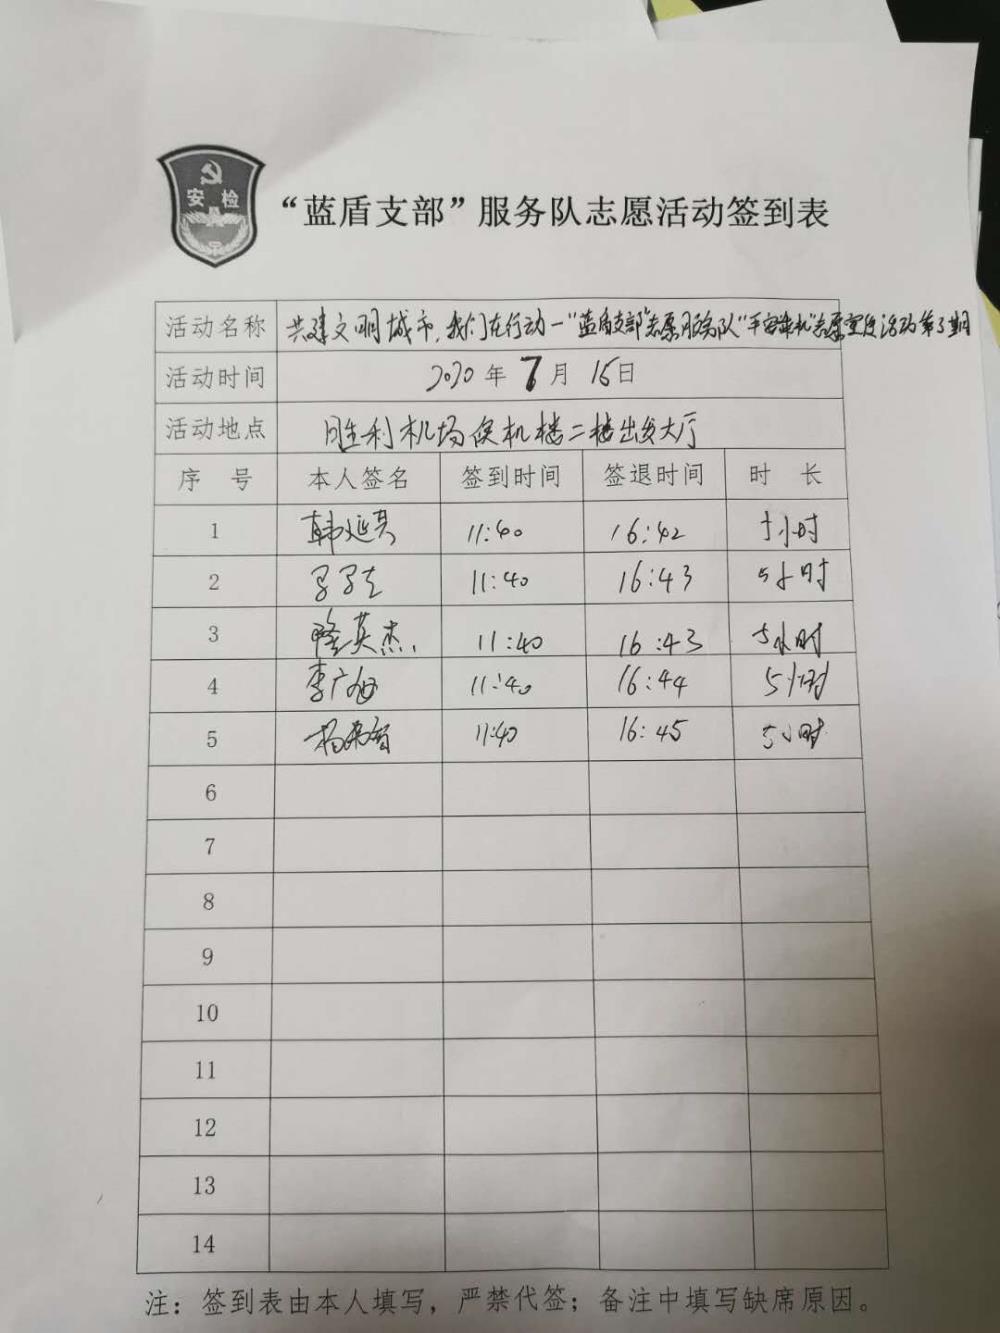 安检
“蓝盾支部”服务队志愿活动签到表
活动名称 共建文明城市,我们在行动—“蓝盾支部”志愿服务队“平安乘机”志愿宣传活动第3期
活动时间 2020年7月15日
活动地点 胜利机场候机楼二楼出发大厅
序 号 本人签名 签到时间 签退时间 时 长
1 韩延 11:40 16:42 5小时
2 11:40 16:43 5小时
3 隆英杰 11:40 16:43 5小时
4 李广 11:40 16:44 5小时
5 杨 11:40 16:45 5小时
6
7
8
9
10
11
12
13
14
注：签到表由本人填写，严禁代签；备注中填写缺席原因。